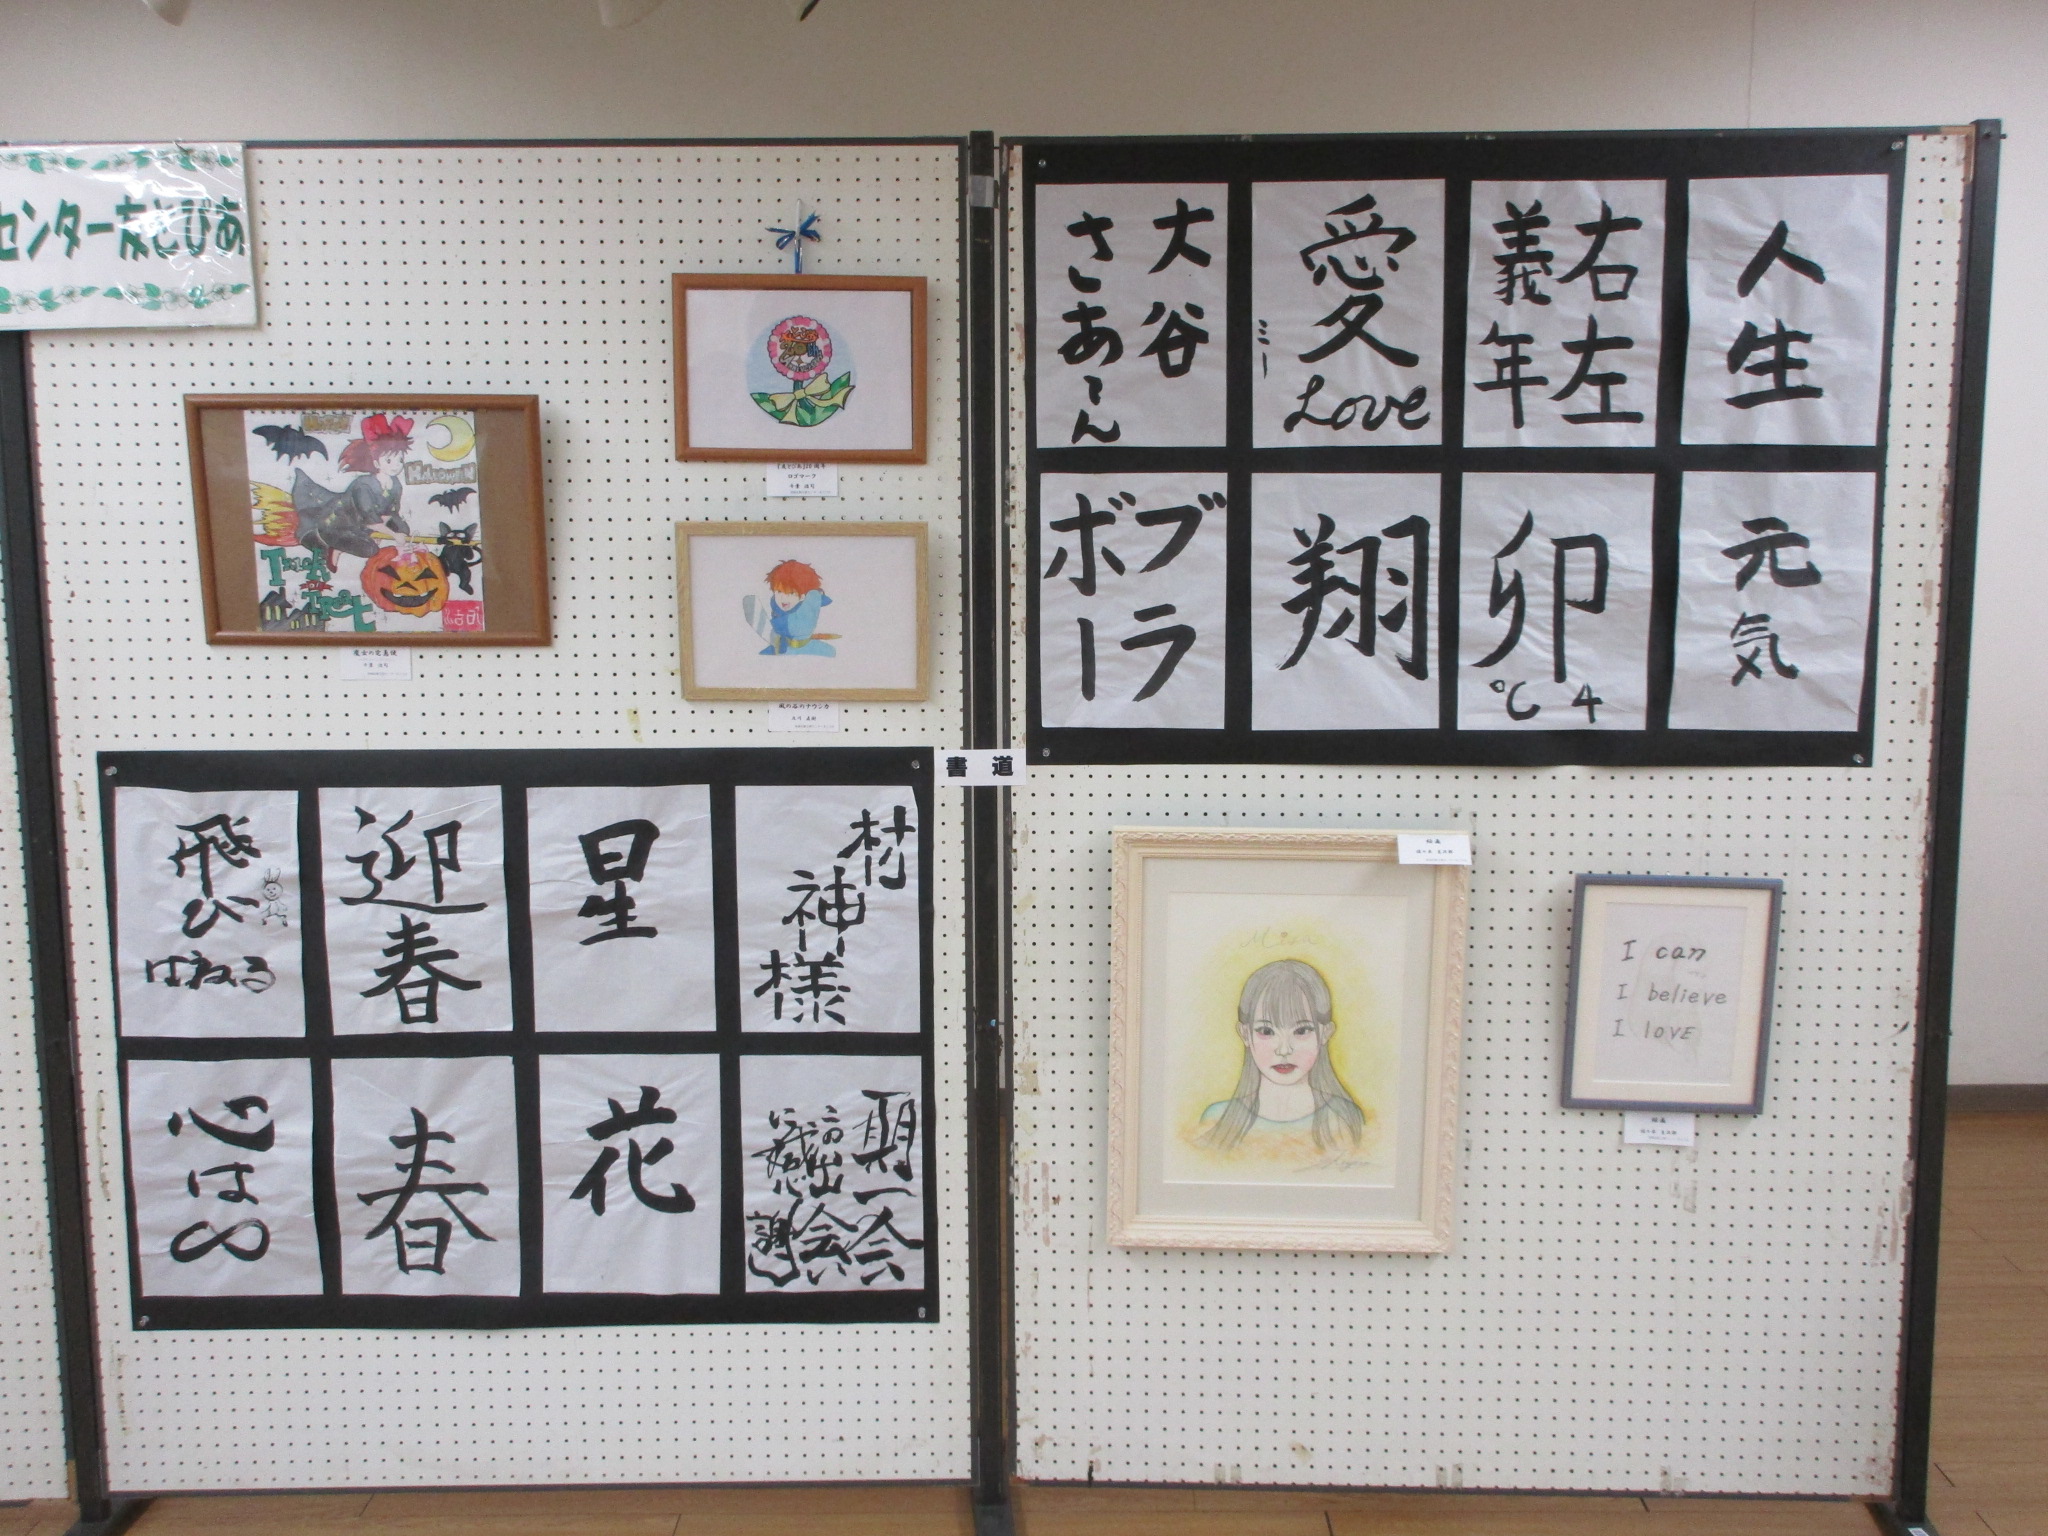 センター友とぴあ
HALLOWEEN
Trick
or
Treat
『友とぴあ』20周年
ロゴマーク
魔女の宅急便
風の谷のナウシカ
書道
大谷
さあ〜ん
愛
ミー
Love
右左
義年
人生
ブラ
ボー
翔
卯
℃ 4
元気
飛び
はねる
迎春
星
村神様
心は∞
春
花
期一会
この出会い
に感謝
I can
I believe
I love